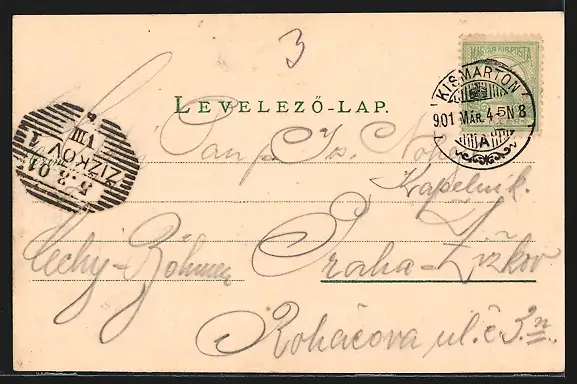 3
MAGYAR KIR. POSTA
KISMARTON
901 MÁR. 4 5N 8
A
LEVELEZŐ-LAP.
ŽIŽKOV 1
5.3.01
VIII
Pan p. Is. Noha
Kapelník.
Čechy-Böhmen
Praha-Žižkov
Roháčova ul. č. 3n.